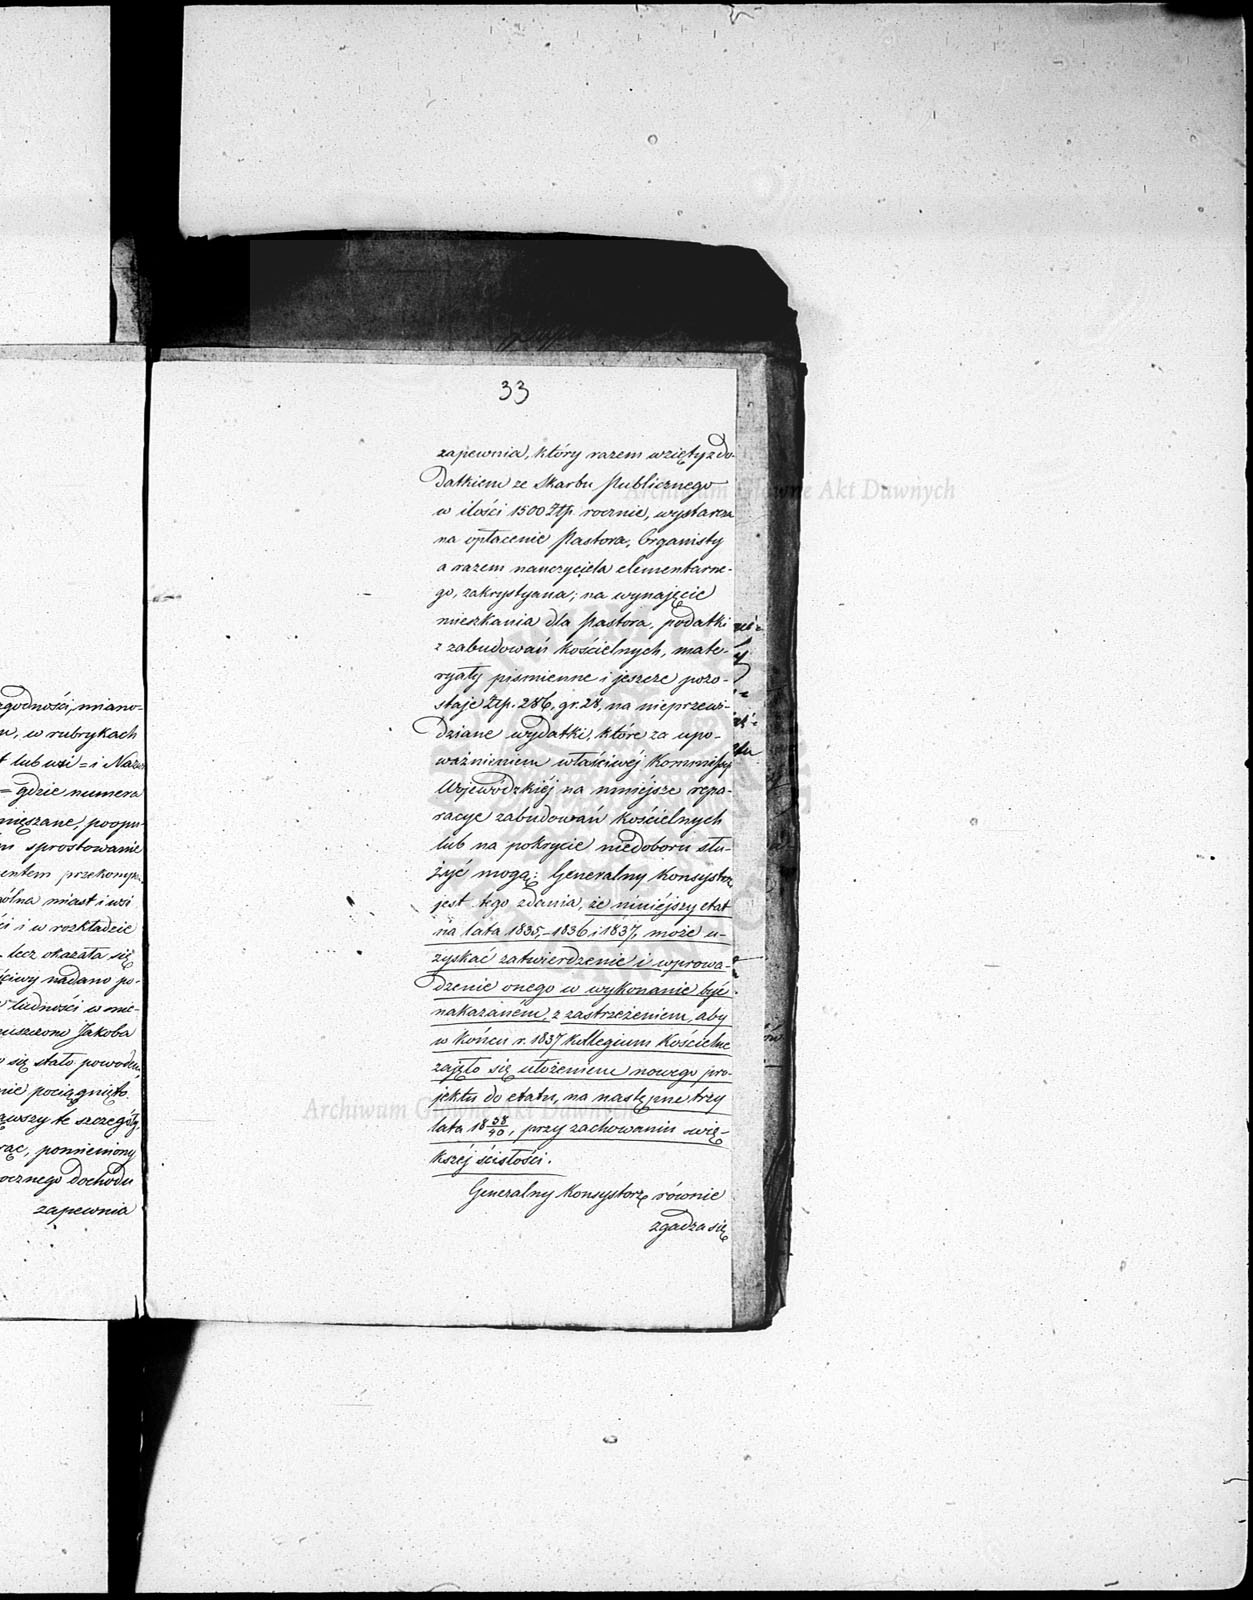 33
zapewnia, który razem wzięty z do-
datkiem ze Skarbu Publicznego
w ilości 1500 Złp. rocznie, wystarcza
na opłacenie Pastora, Organisty
a razem nauczyciela elementarne-
go, zakrystyana; na wynajęcie
mieszkania dla Pastora, podatki
z zabudowań kościelnych, mate-
ryały piśmienne i jeszcze pozo-
staje Złp. 286, gr. 28, na nieprzewi-
dziane wydatki, które za upo-
ważnieniem właściwéj Kommissyi
Wojewódzkiéj na mniejsze repa-
racye zabudowań kościelnych
lub na pokrycie niedoboru słu-
żyć mogą: Generalny Konsystorz
jest tego zdania, że niniejszy etat
na lata 1835, -1836 i 1837, może u-
zyskać zatwierdzenie i wprowa-
dzenie onego w wykonanie być
nakazaném, z zastrzeżeniem, aby
w końcu r. 1837 Kollegium Kościelne
zajęło się ułożeniem nowego pro-
jektu do etatu, na następne trzy
lata 18 38/40, przy zachowaniu wię-
kszéj ścisłości.
Generalny Konsystorz równie
zgadza się
zgodności, miano-
w rubrykach
lub wsi = i
= gdzie numera
sprostowanie
miast i wsi
i w rozkładzie
lecz okazała się
nadano po-
ludności w mie-
Jakoba
się stało powodem
pociągnięto.
te szczegóły,
pomieniony
dochodu
zapewnia
Archiwum Główne Akt Dawnych
Archiwum Główne Akt Dawnych